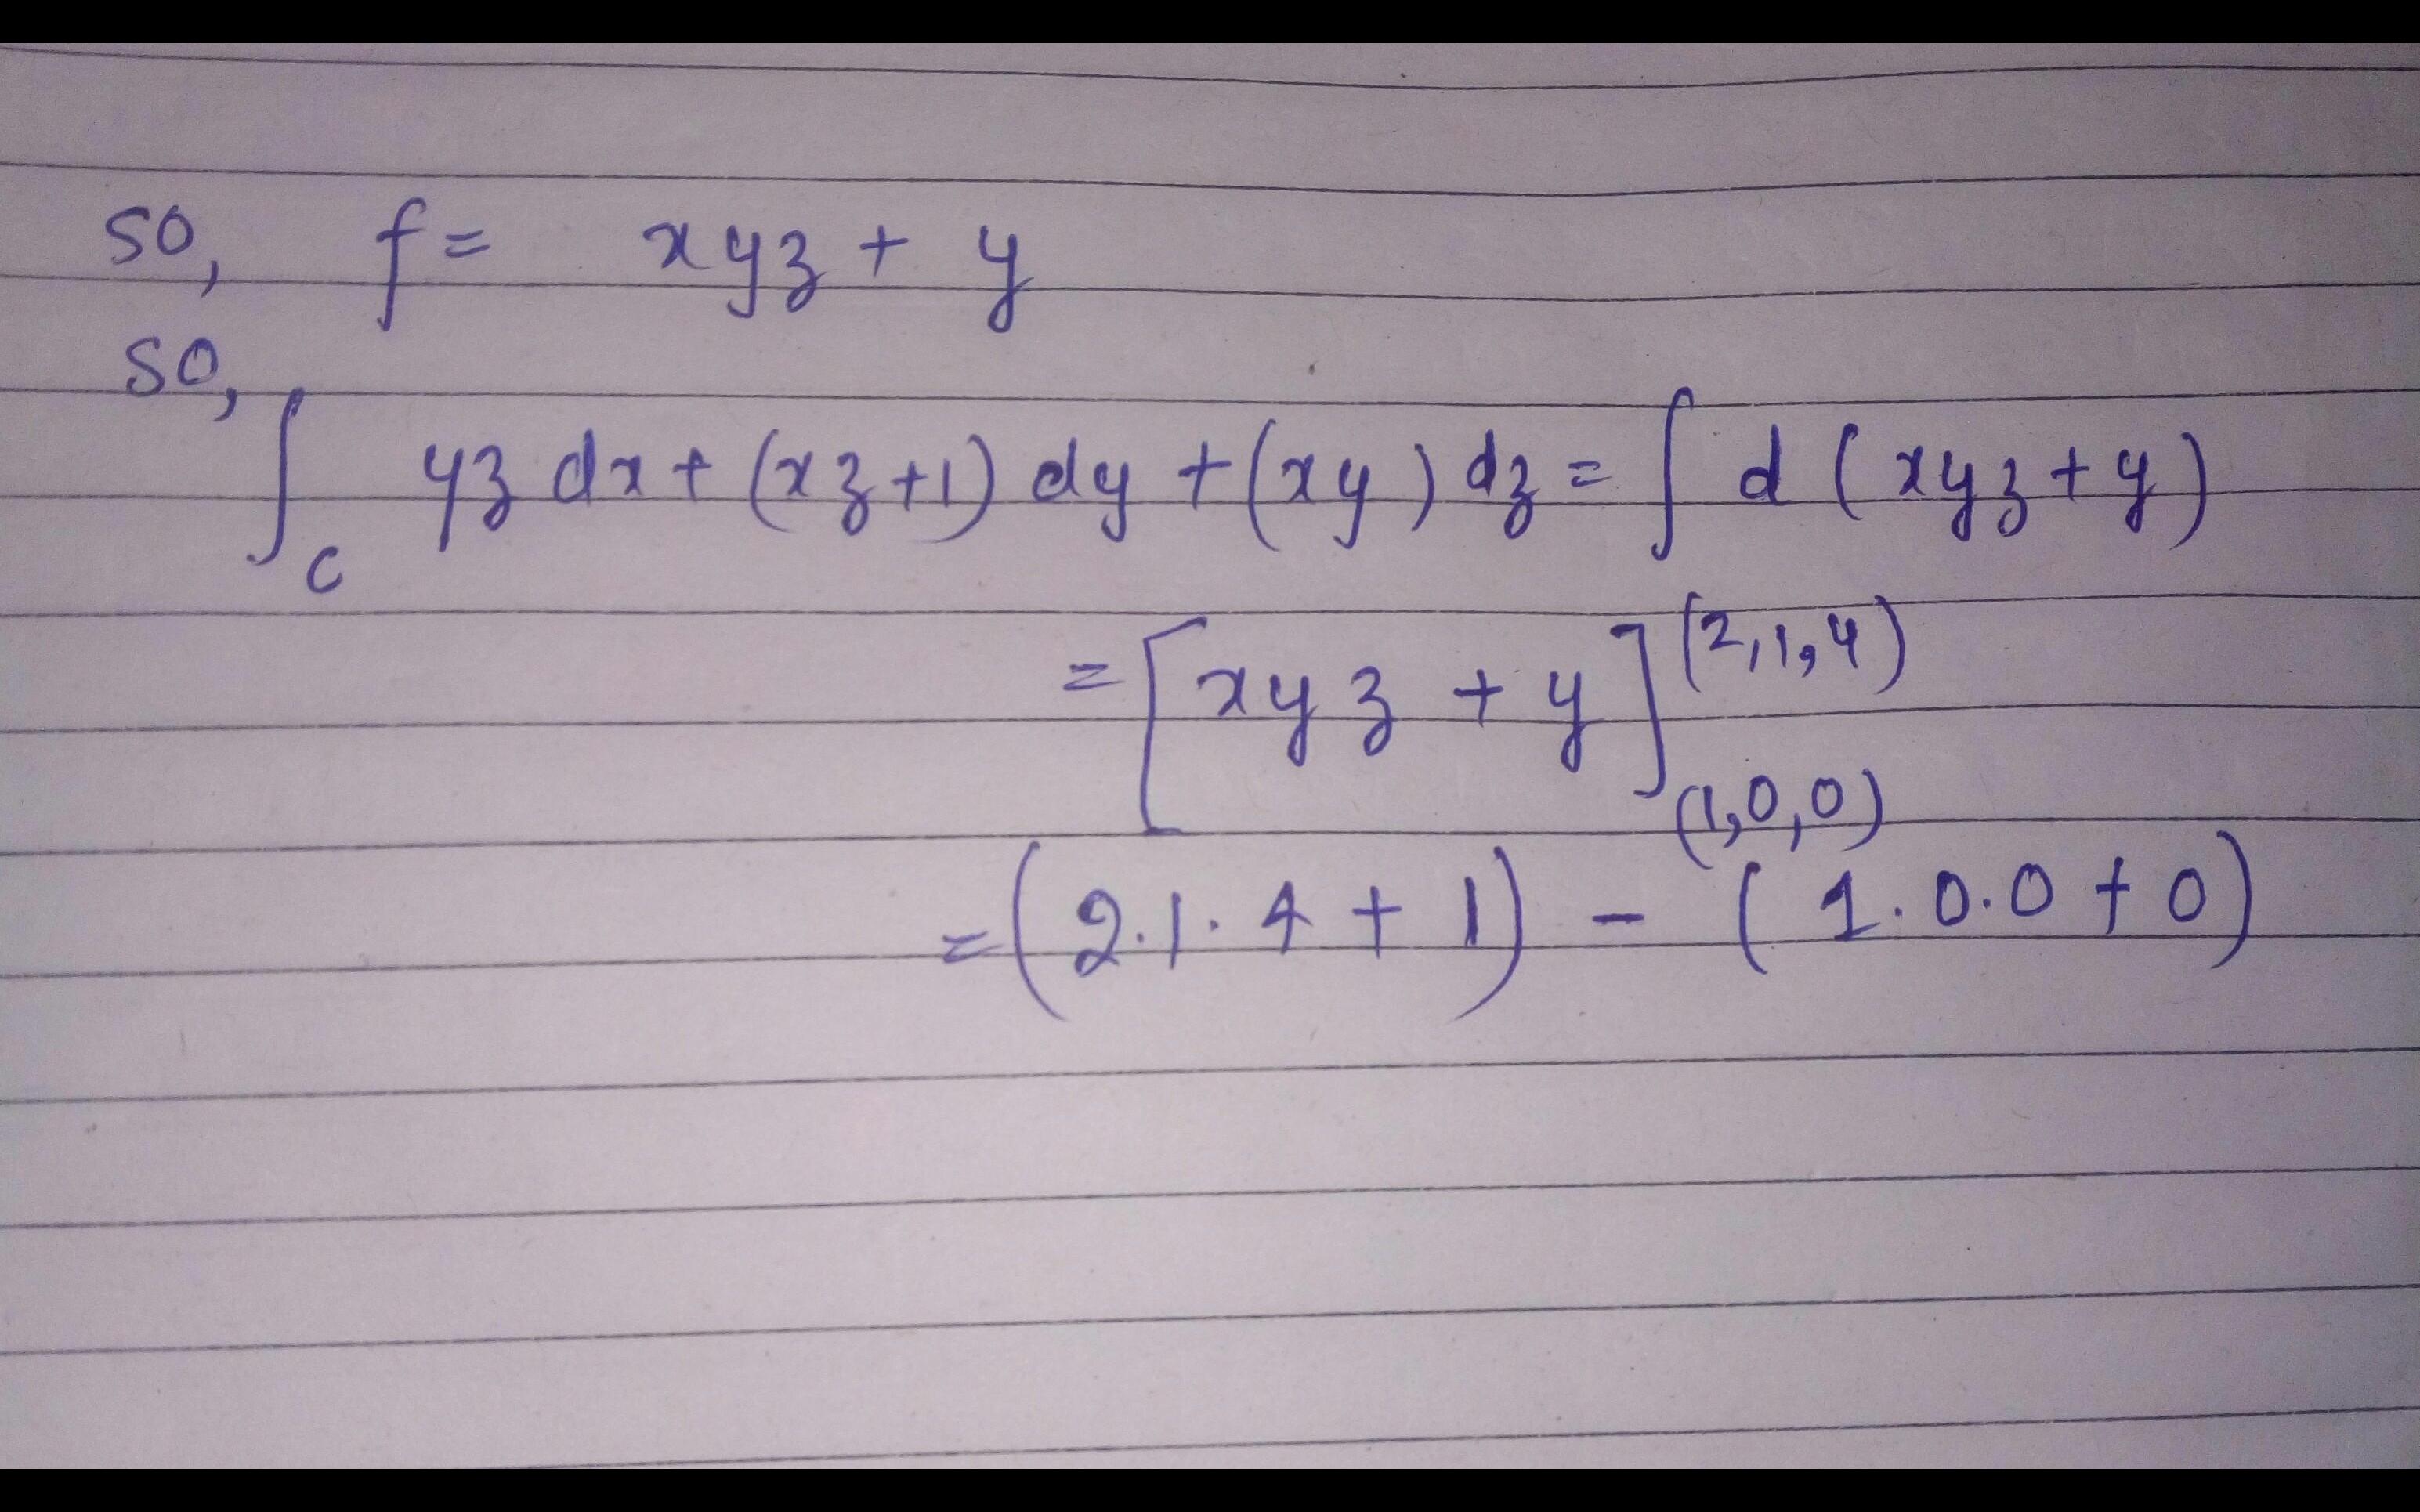 so, f = xyz + y
so,
∫_C yz dx + (xz+1) dy + (xy) dz = ∫ d (xyz + y)
= [xyz + y]_(1,0,0)^(2,1,4)
= (2.1.4 + 1) - (1.0.0 + 0)